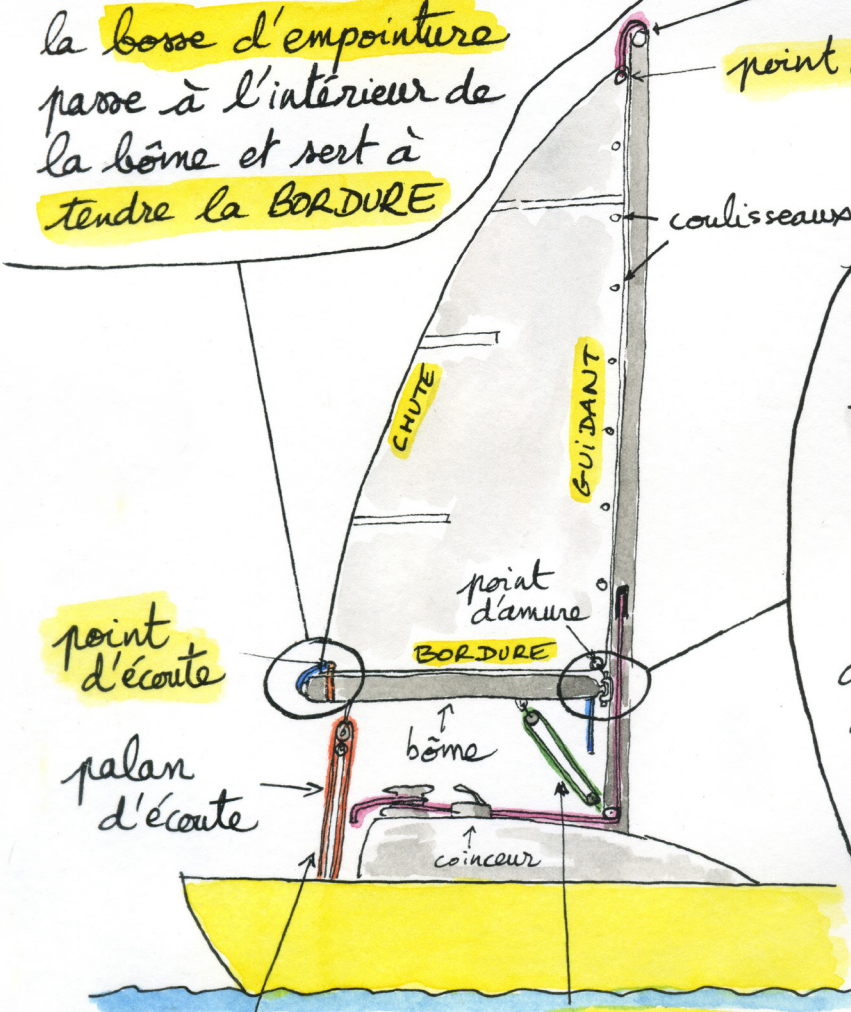 la bosse d'empointure
passe à l'intérieur de
la bôme et sert à
tendre la BORDURE
point
coulisseaux
CHUTE
GUIDANT
point
d'amure
BORDURE
point
d'écoute
bôme
palan
d'écoute
coinceur